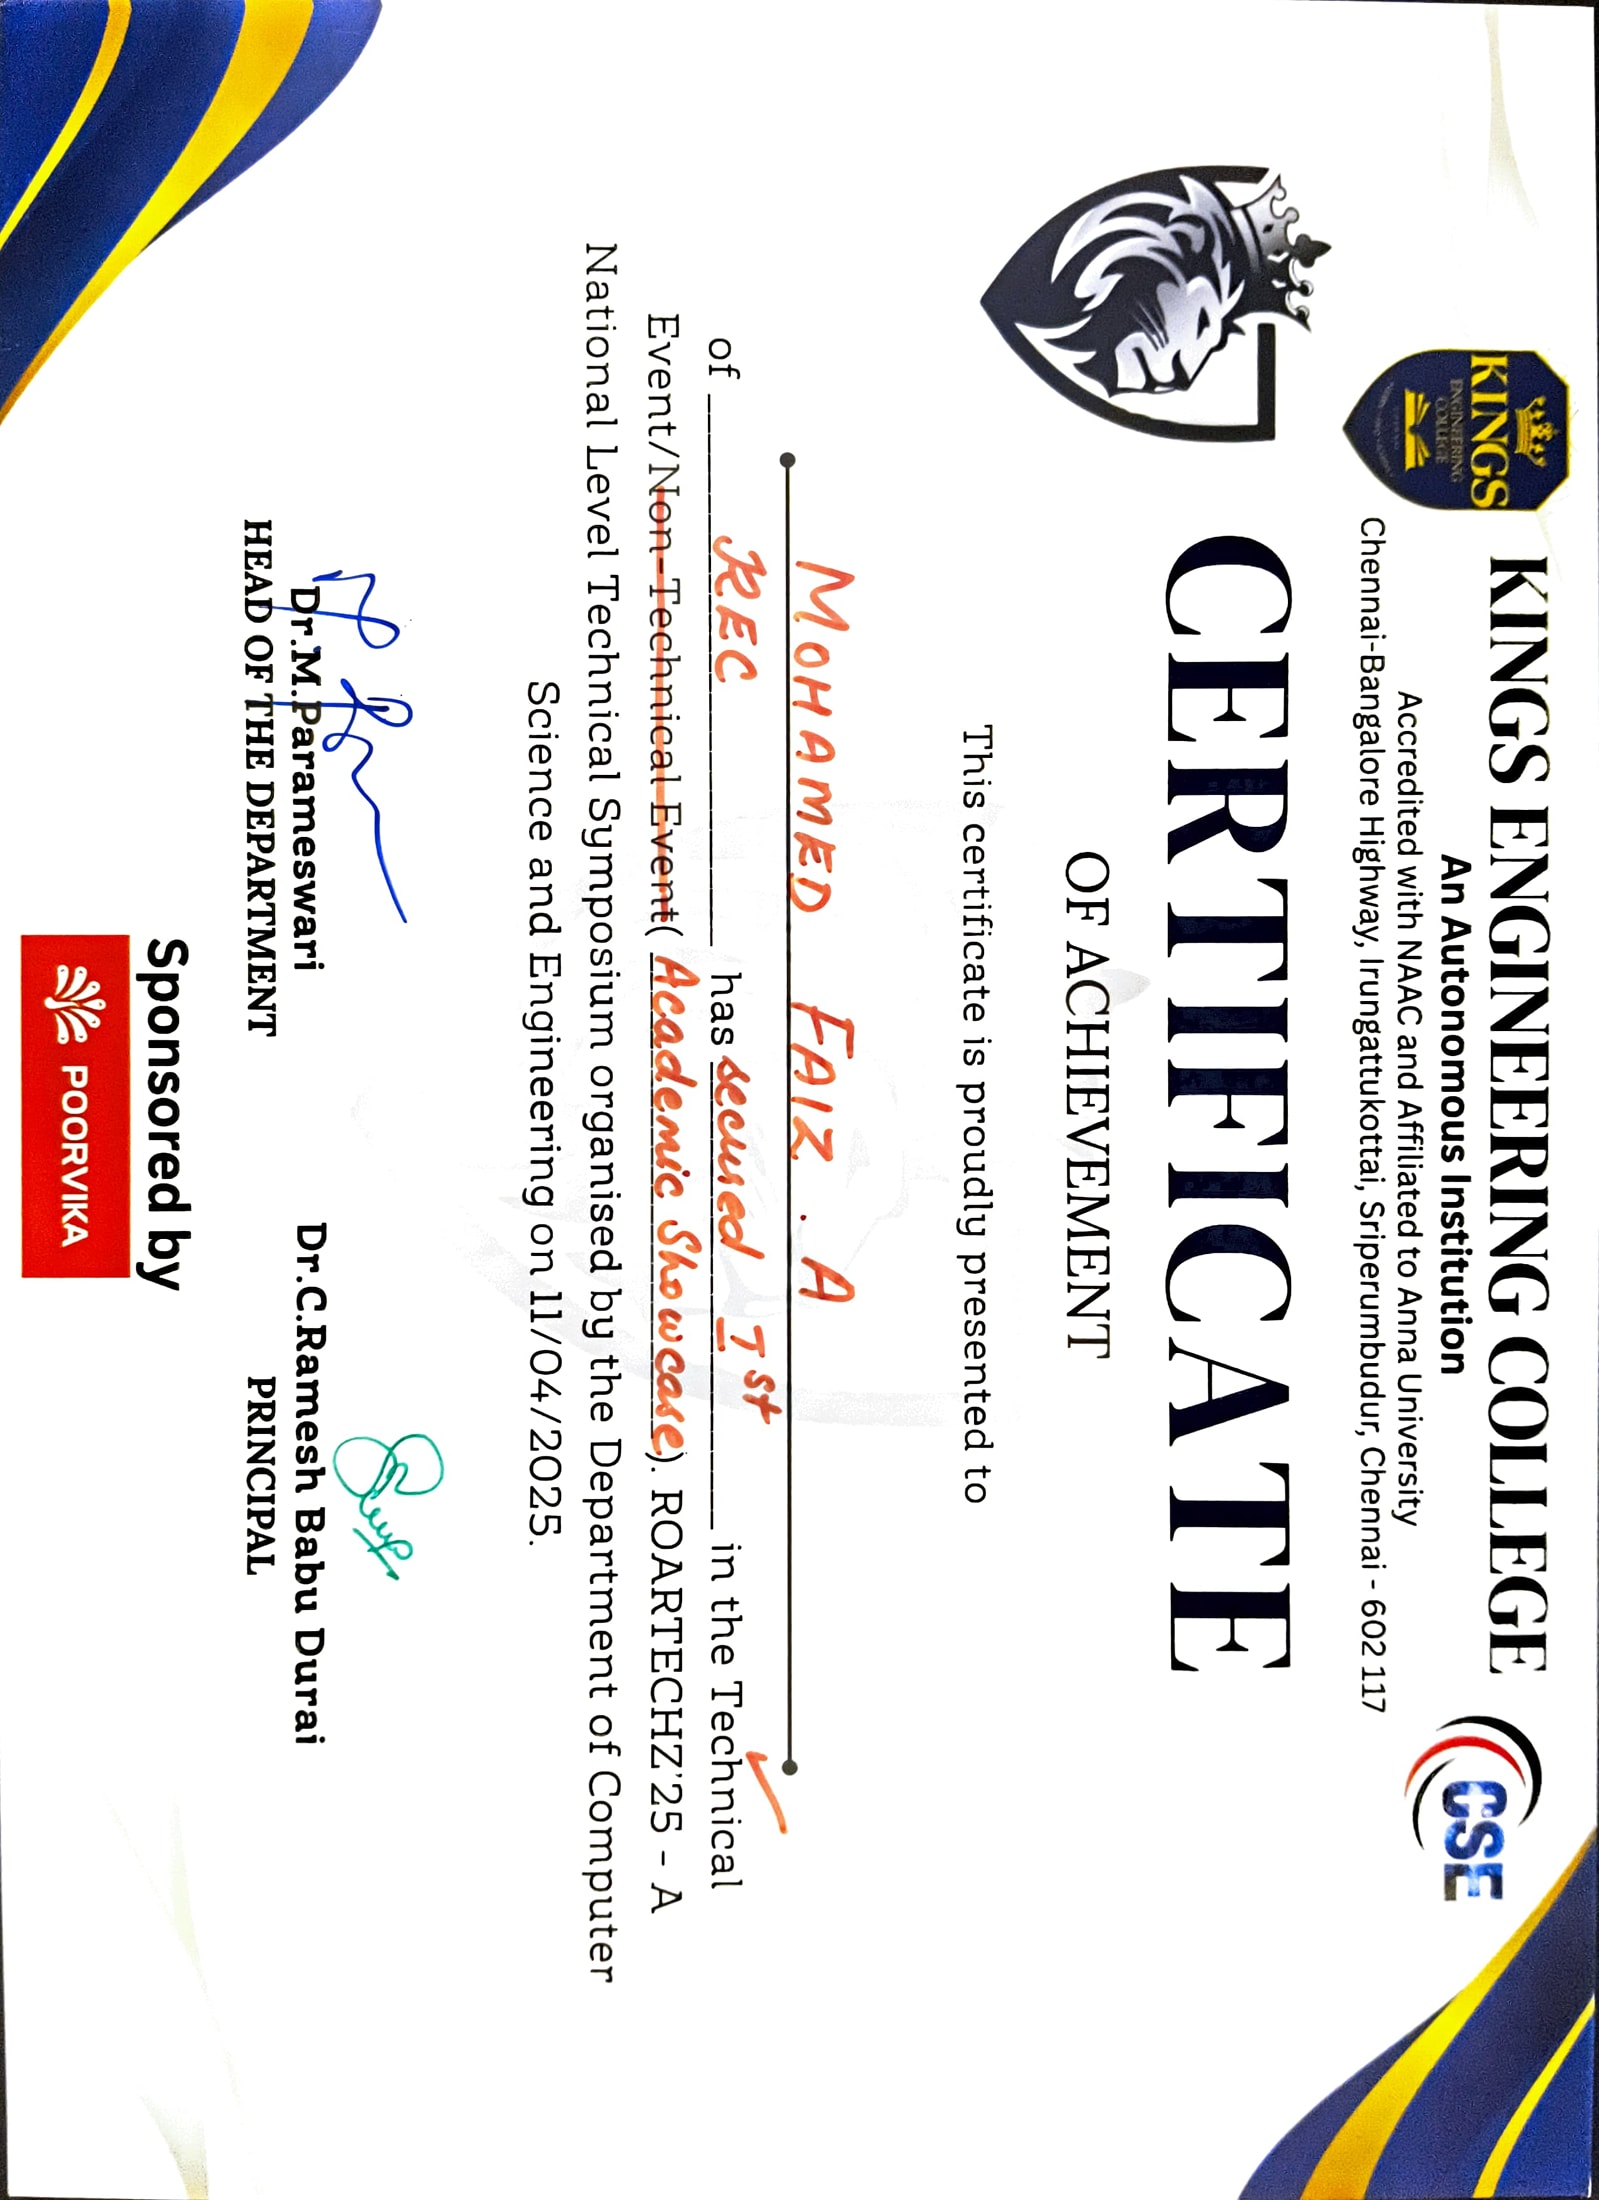 KINGS
ENGINEERING
COLLEGE
KINGS ENGINEERING COLLEGE
CSE
An Autonomous Institution
Accredited with NAAC and Affiliated to Anna University
Chennai-Bangalore Highway, Irungattukottai, Sriperumbudur, Chennai - 602 117
CERTIFICATE
OF ACHIEVEMENT
This certificate is proudly presented to
MOHAMED FAIZ . A
of REC has secured Ist in the Technical
Event/Non-Technical Event( Academic Showcase). ROARTECHZ'25 - A
National Level Technical Symposium organised by the Department of Computer
Science and Engineering on 11/04/2025.
Dr.M.Parameswari
HEAD OF THE DEPARTMENT
Dr.C.Ramesh Babu Durai
PRINCIPAL
Sponsored by
POORVIKA